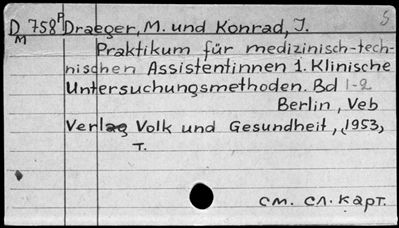 D 758 P Draeger, M. und Konrad, J. 5
M
Praktikum für medizinisch-tech-
nischen Assistentinnen 1. Klinische
Untersuchungsmethoden. Bd 1-2
Berlin, Veb
Verlag Volk und Gesundheit, 1953,
T.
см. сл. карт.